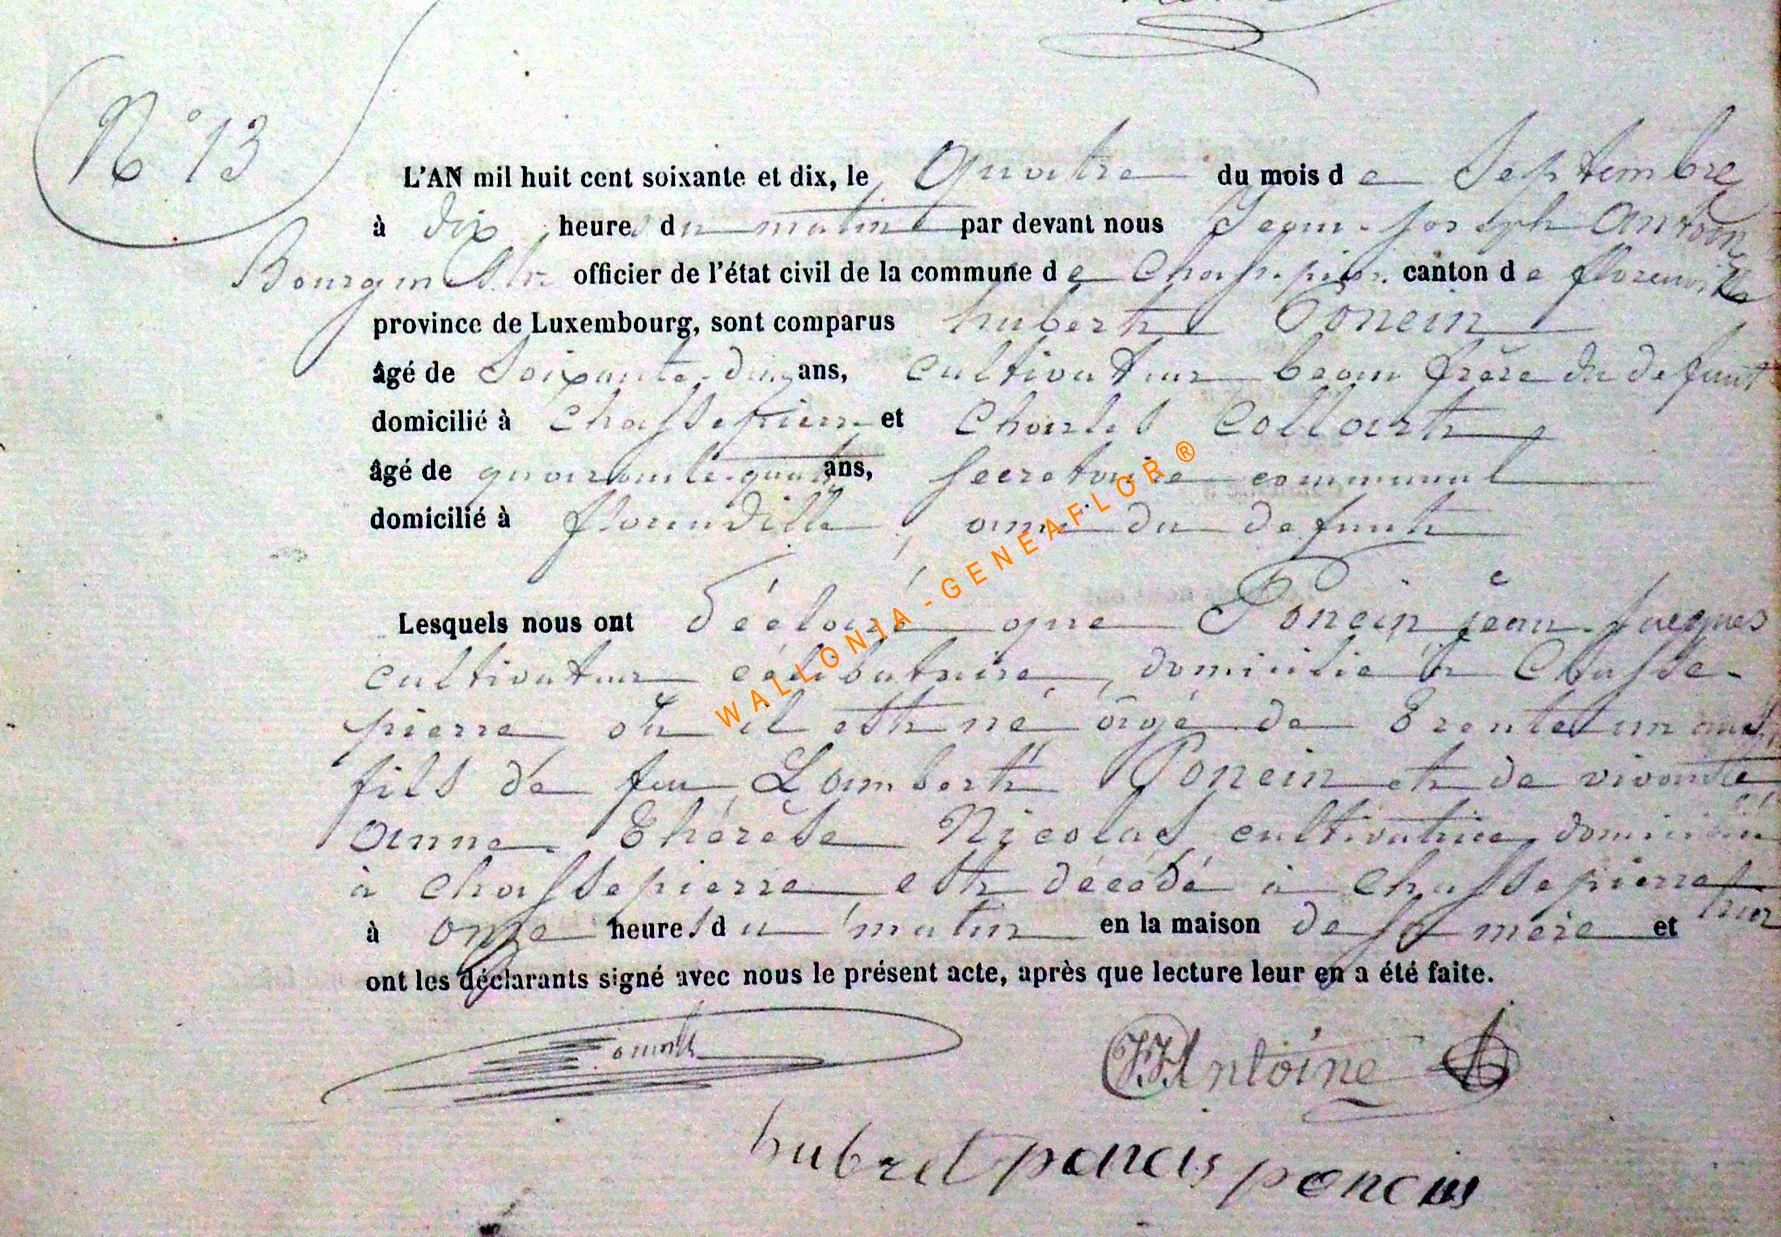 N° 13
L'AN mil huit cent soixante et dix, le quatre du mois de Septembre
à dix heures du matin par devant nous Jean-Joseph Antoine
Bourgmestre officier de l'état civil de la commune de Chassepierre canton de florenville
province de Luxembourg, sont comparus hubert Poncin
âgé de Soixante-dix ans, cultivateur beau frère du defunt
domicilié à Chassepierre et Charles Collart
âgé de quarante-quatre ans, secretaire communal
domicilié à florenville, ami du defunt
Lesquels nous ont déclaré que Poncin jean-Jacques
cultivateur célibataire, domicilié à Chasse-
pierre où il est né âgé de trente un ans
fils de feu Lambert Poncin et de vivante
anne Thérèse Nicolas cultivatrice domiciliée
à chassepierre est décédé à chassepierre hier
à onze heures du matin en la maison de sa mère et
ont les déclarants signé avec nous le présent acte, après que lecture leur en a été faite.
JJAntoine
hubret poncis poncin
WALLONIA - GENEAFLOR ®